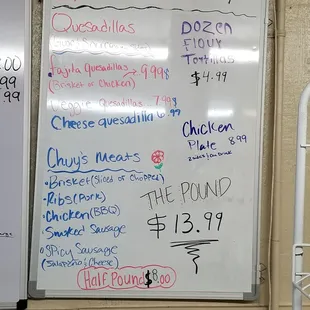 Quesadillas
Fajita Quesadillas → 9.99$
(Brisket or Chicken)
Veggie Quesadillas 7.99$
Cheese quesadilla 6.99
DOZEN
FLOUR
Tortillas
$4.99
Chicken
Plate 8.99
Chuy's Meats
·Brisket (Sliced or Chopped)
·Ribs (Pork)
·Chicken (BBQ)
·Smoked Sausage
·Spicy Sausage
(Jalapeño & Cheese)
THE POUND
$13.99
Half Pound $8.00